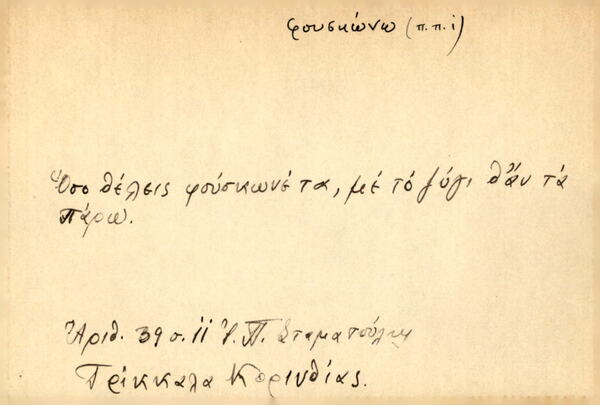 φουσκώνω (π.π.ι)
Ὅσο θέλεις φούσκωνέ τα, μέ τό ζύγι θἄν τά
πάρω.
Ἀριθ. 39 σ. 11 Ἰ. Π. Σταματούλη
Τρίκκαλα Κορινθίας.